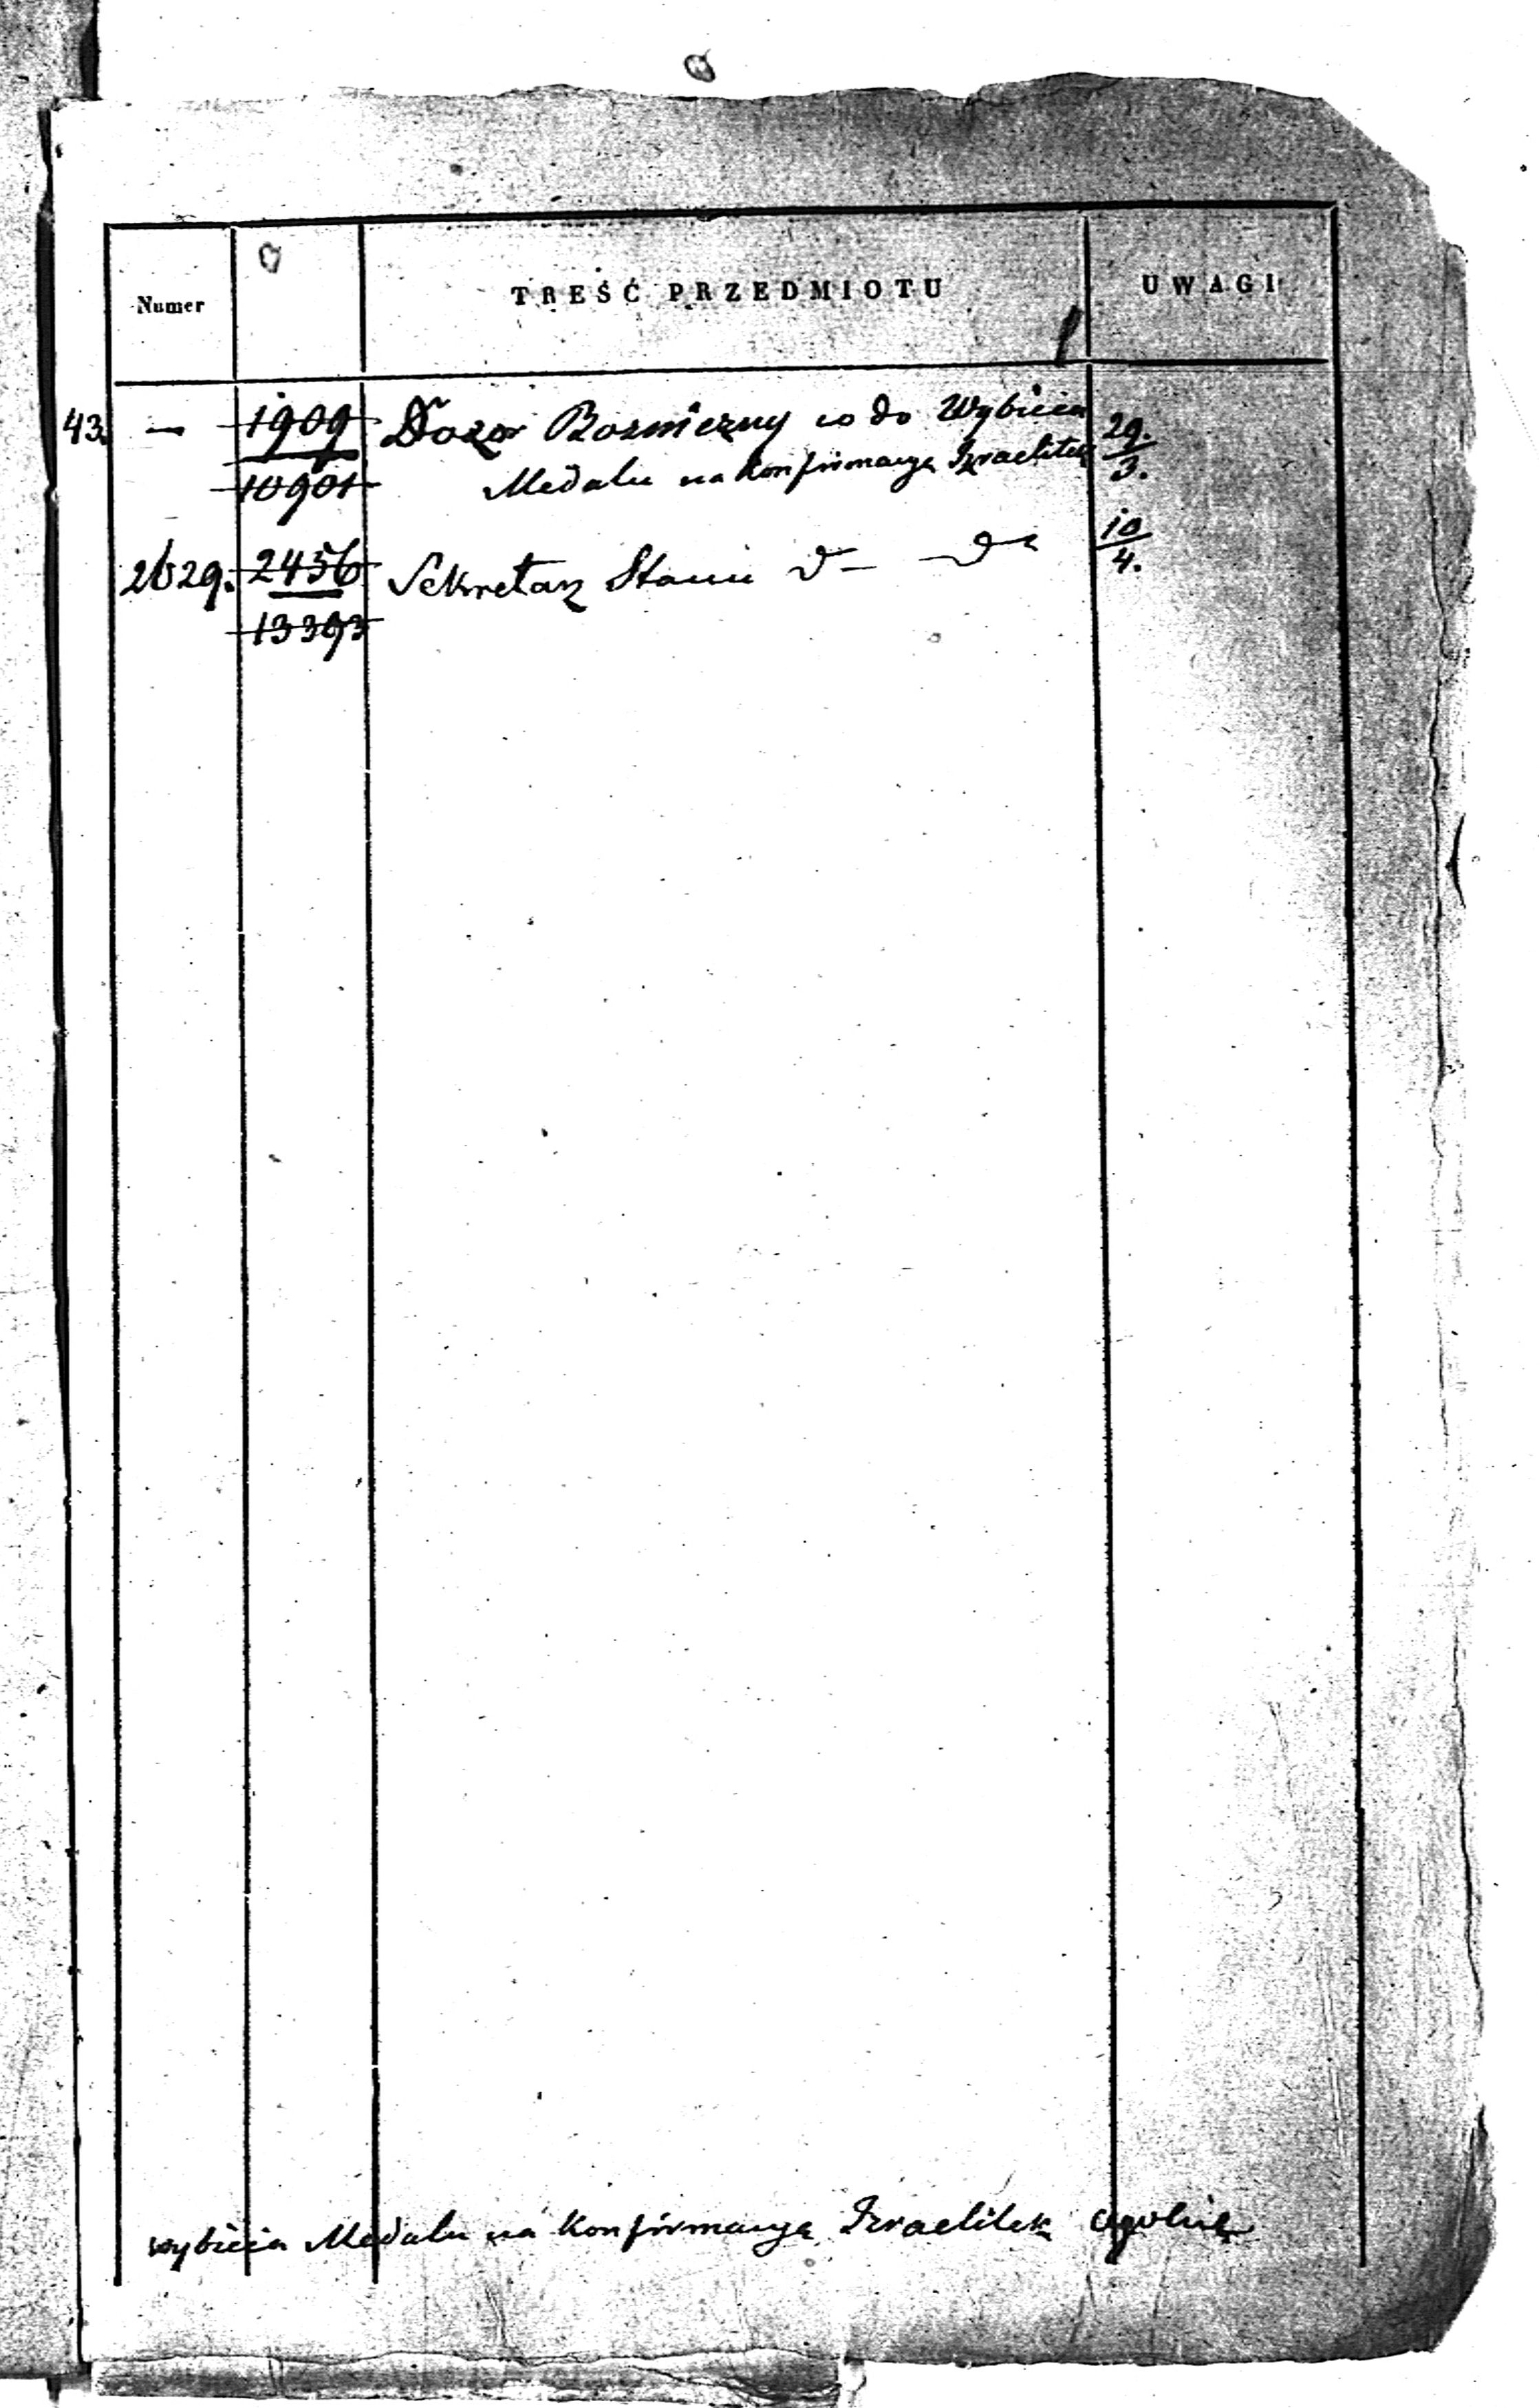 Numer TREŚĆ PRZEDMIOTU UWAGI
43. — 1909 Dozor Bozniczny co do Wybicia 29.
10901 Medalu na Konfirmacyą Izraelitek 3.
2629. 2456 Sekretarz Stanu d— — do 10
13393 4.
wybicia Medalu na Konfirmacyą Izraelitek ogolnie